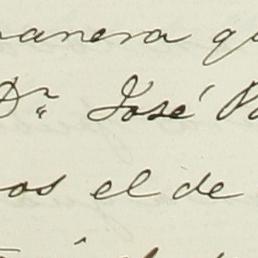 manera qu
Dr. José
os el de